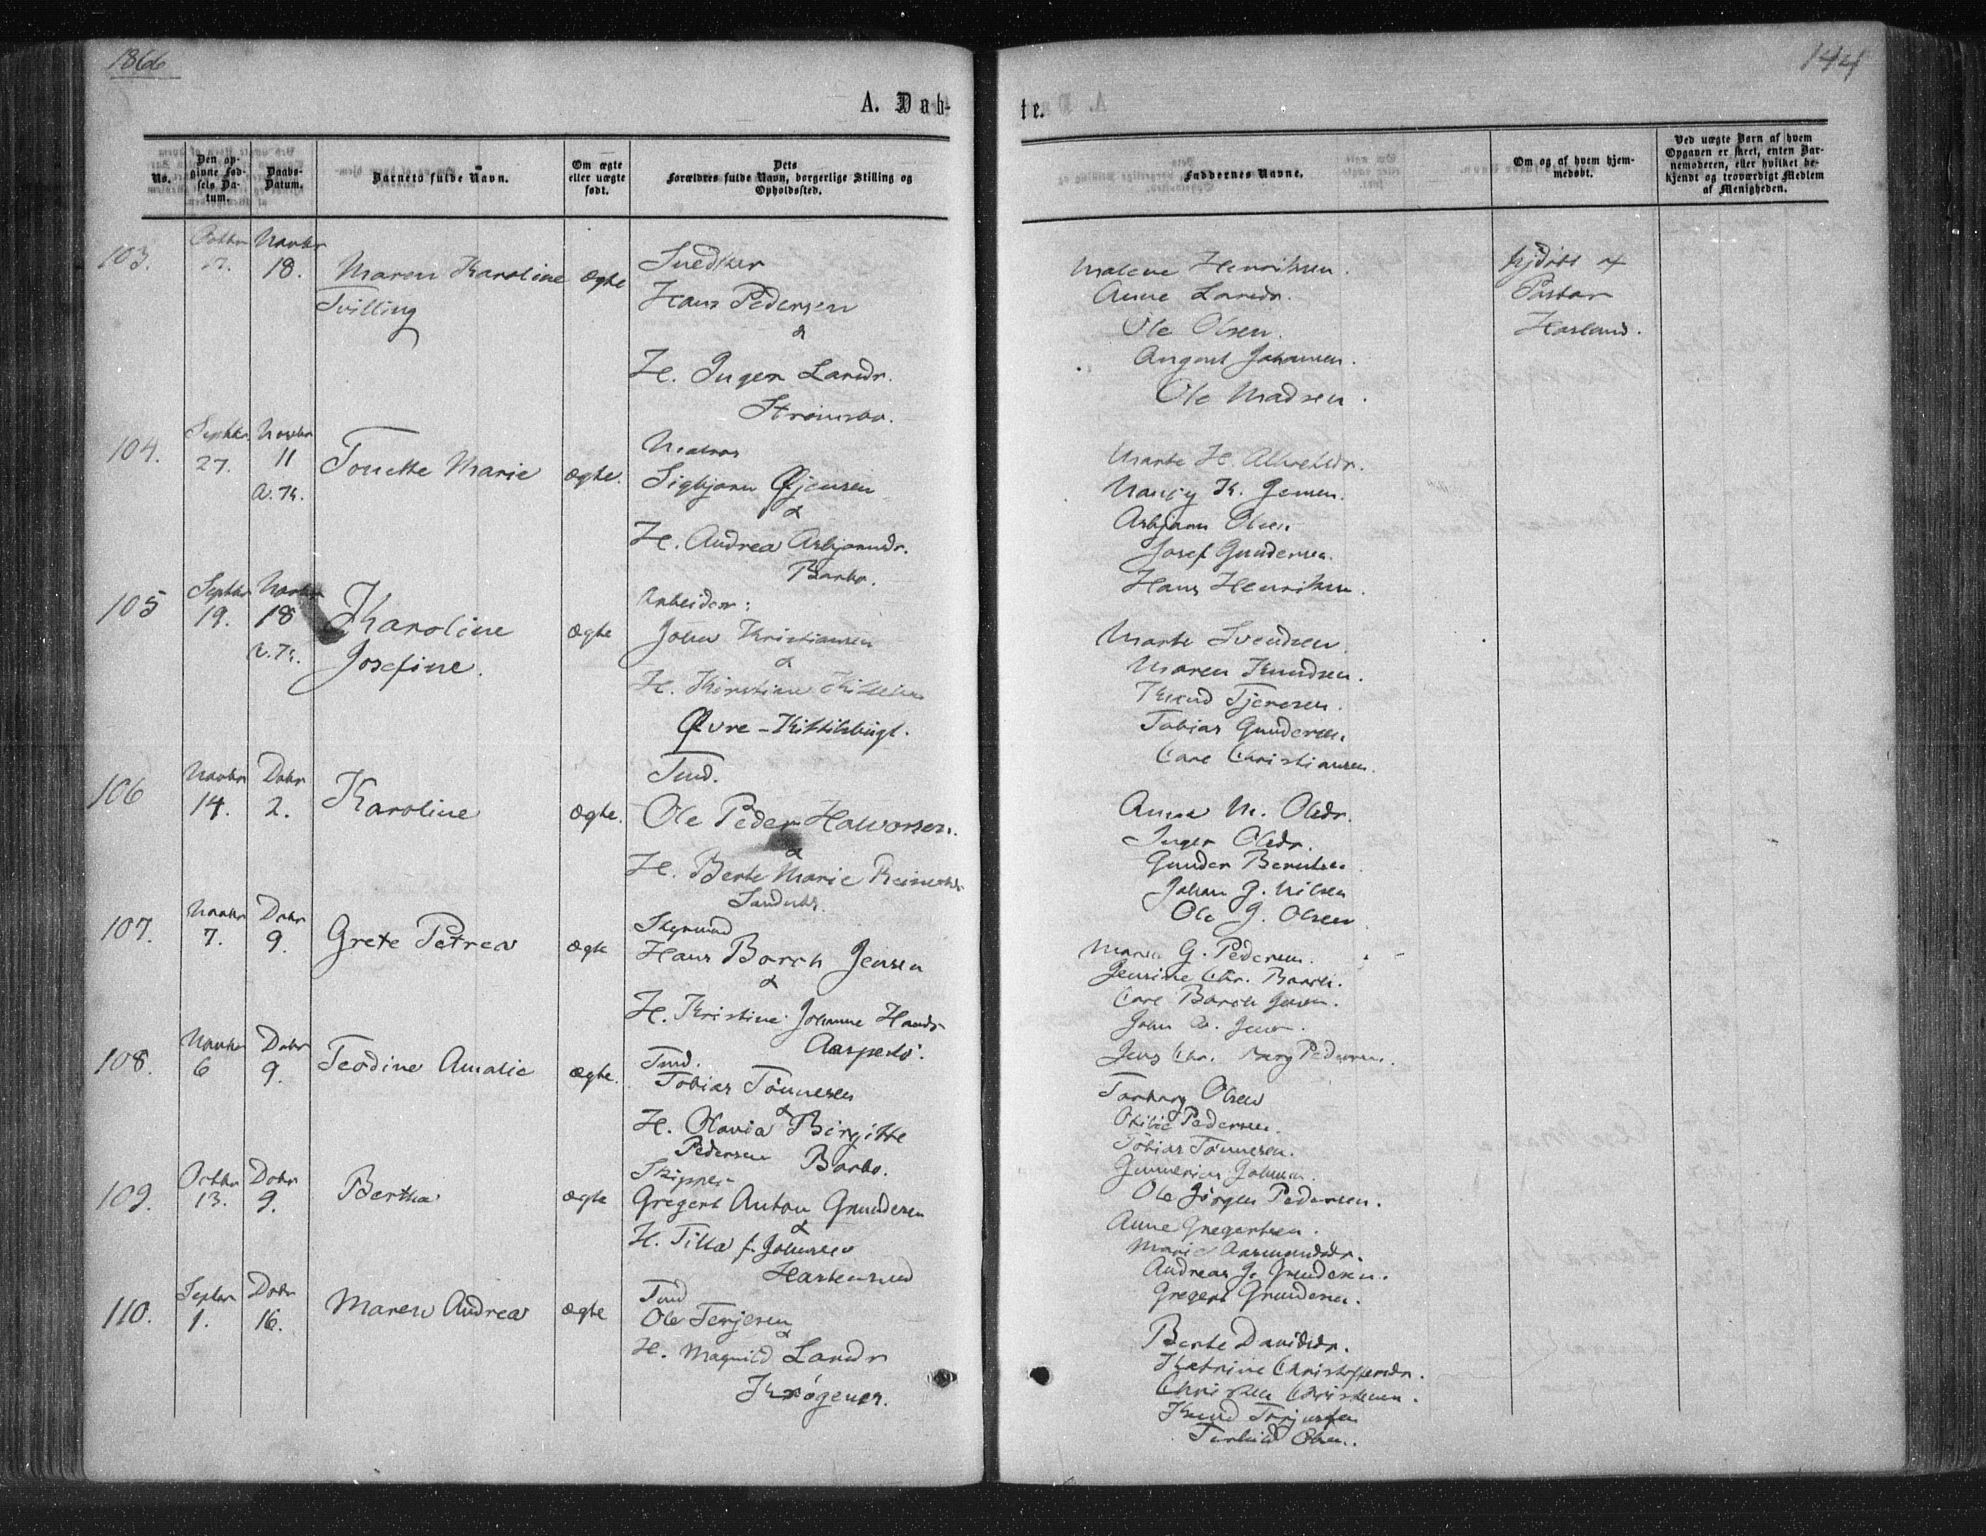 1866
144
A. Døb-
te.
No.
Den op-
givne Fød-
sels Da-
tum.
Daabs-
Datum.
Barnets fulde Navn.
Om ægte
eller uægte
født.
Dets
Forældres fulde Navn, borgerlige Stilling og
Opholdssted.
Faddernes Navne.
Om og af hvem hjem-
medøbt.
Ved uægte Barn af hvem
Opgaven er skeet, enten Bar-
nemoderen, eller hvilket be-
kjendt og troværdigt Medlem
af Menigheden.
103.
Octbr
17.
Novbr
18.
Maren Karoline
Tvilling
ægte
Snedker
Hans Pedersen
&
H. Inger Larsdr.
Strømsbo.
Malene Henriksen.
Anne Larsdr.
Ole Olsen.
August Johansen.
Ole Madsen.
hjdøbt af
Pastor
Harland.
104.
Septbr
27.
Novbr
11
a. K.
Tonette Marie
ægte.
Matros
Sigbjørn Øjensen
&
H. Andrea Asbjørnsdr.
Barbo.
Marte H.
Nancy K. Jensen.
Asbjørn Olsen
Josef Gundersen.
Hans Henriksen.
105
Septbr
19.
Novbr
18
a. K.
Karoline
Josefine.
ægte
Arbeider:
John Kristiansen
&
H. Kirstine
Øvre-Kittilsbugt.
Marte Svendsen.
Maren Knudsen.
Knud Tjersen.
Tobias Gundersen.
Carl Christiansen.
106
Novbr
14.
Dcbr
2.
Karoline
ægte.
Tmd.
Ole Peder Halvorsen.
&
H. Berte Marie
Anne M. Olsdr.
Inger Olsdr.
Gunder Berntsen
Johan G. Nilsen
Ole G. Olsen
107.
Novbr
7.
Dcbr
9.
Grete Petrea
ægte
Styrmand
Hans Borch Jensen
&
H. Kristine Johanne Hansdr
Aasperlø.
Maren G. Pedersen.
Jensine Chr. Borch.
Carl Borch Jensen.
John A. Jensen.
Jens Chr. Berg Pedersen.
108.
Novbr
6
Dcbr
9.
Teodine Amalie
ægte.
Tmd.
Tobias Tønnesen
&
H. Olavia Birgitte
Pedersen Barbo.
Torborg Olsen
Otilie Pedersen.
Tobias Tønnesen.
Gunnerius Johnsen.
Ole Jørgen Pedersen.
109.
Octbr
13.
Dcbr
9.
Bertha
ægte
Skipper
Gregert Anton Gundersen
&
H. Tilla f. Johnsen
Hastensund
Anne Gregertsen.
Marie Aasmundsdr.
Andreas G. Gundersen.
Gregert Gundersen.
110.
Septbr
1.
Dcbr
16.
Maren Andrea
ægte
Tmd
Ole Terjesen
&
H. Magnild Larsdr
Krøgenes.
Berte Davidsdr.
Katrine Christophersdr.
Christen Christensen.
Knud Terjesen
Terkild Olsen.